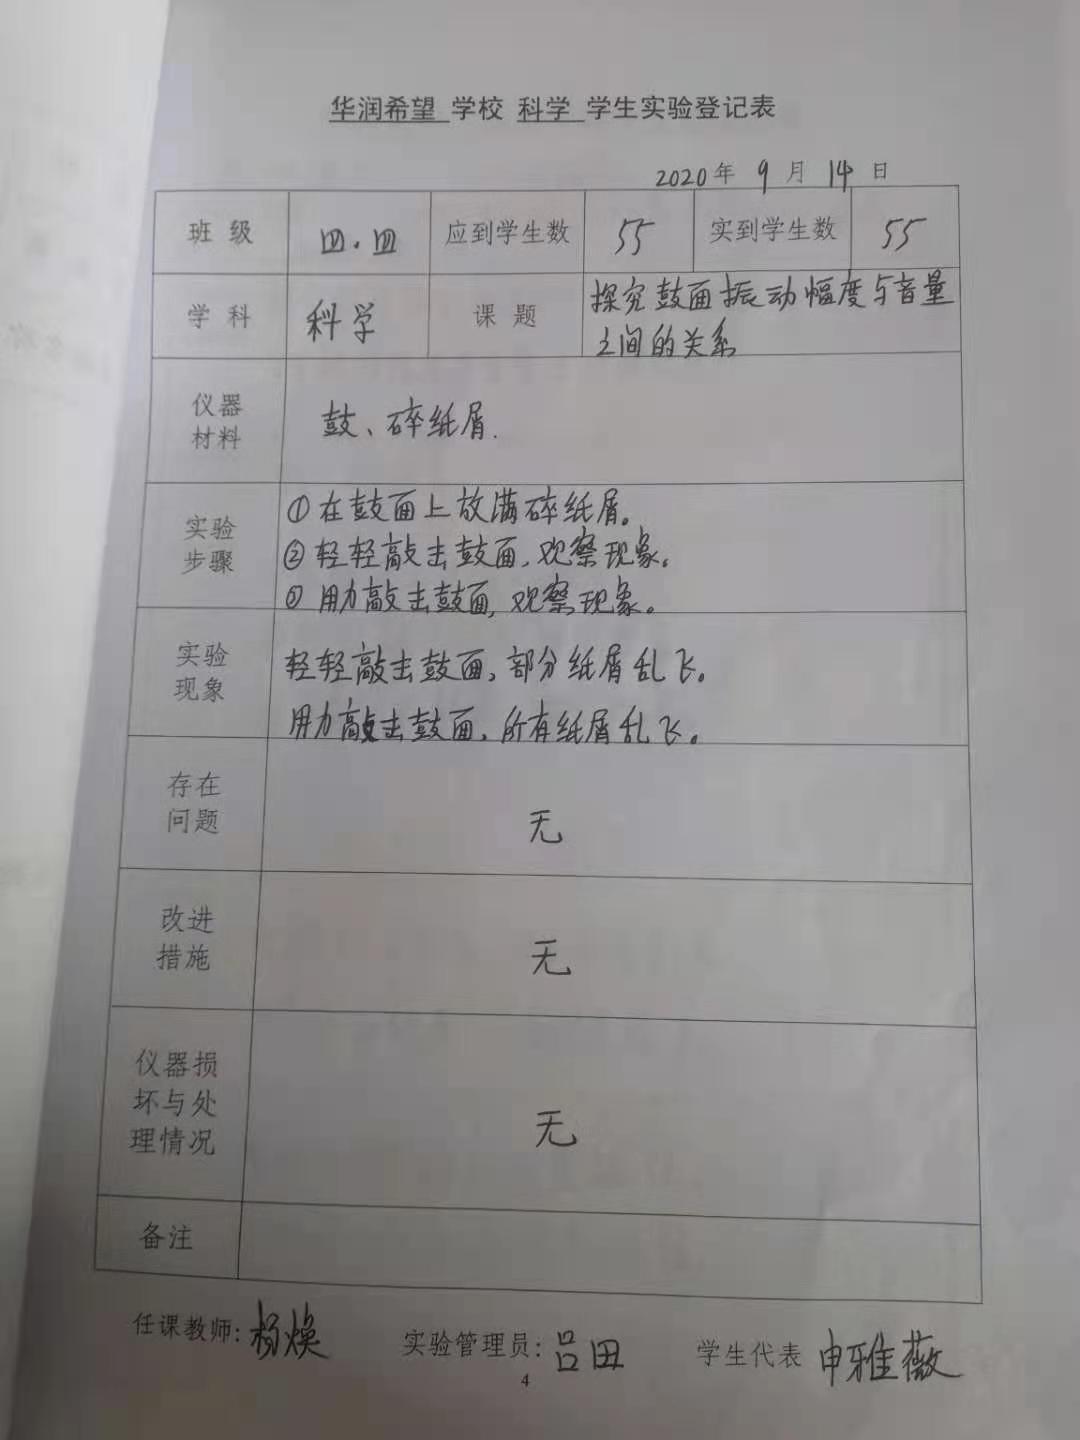 华润希望 学校 科学 学生实验登记表
2020年 9 月 14 日
班 级 四.四 应到学生数 55 实到学生数 55
学 科 科学 课 题 探究鼓面振动幅度与音量
之间的关系
仪器
材料
鼓、碎纸屑.
实验
步骤
①在鼓面上放满碎纸屑。
②轻轻敲击鼓面,观察现象。
③用力敲击鼓面,观察现象。
实验
现象
轻轻敲击鼓面,部分纸屑乱飞。
用力敲击鼓面,所有纸屑乱飞。
存在
问题
无
改进
措施
无
仪器损
坏与处
理情况
无
备注
任课教师:杨焕 实验管理员:吕田 学生代表 申雅薇
4